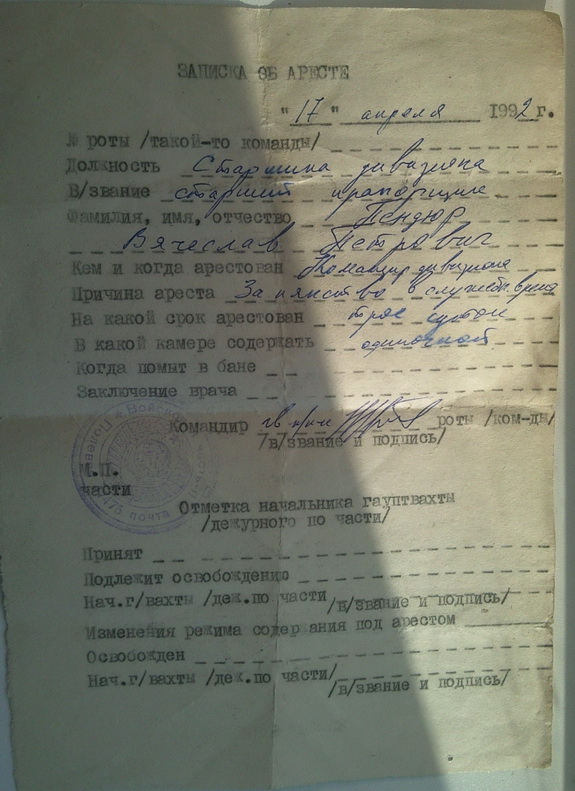 ЗАПИСКА ОБ АРЕСТЕ
"17" апреля 1992 г.
№ роты /такой-то команды/
Должность Старшина дивизиона
В/звание старший прапорщик
Фамилия, имя, отчество Пендюр
Вячеслав Петрович
Кем и когда арестован Командир дивизиона
Причина ареста За пянство в служебн. время
На какой срок арестован трое суток
В какой камере содержать одиночной
Когда помыт в бане
Заключение врача
Командир роты /ком-ды/
/в/звание и подпись/
М.П.
части
почта
Отметка начальника гауптвахты
/дежурного по части/
Принят
Подлежит освобождению
Нач.г/вахты /деж.по части /в/звание и подпись/
Изменения режима содер ания под арестом
Освобожден
Нач.г/вахты /деж.по части/
/в/звание и подпись/